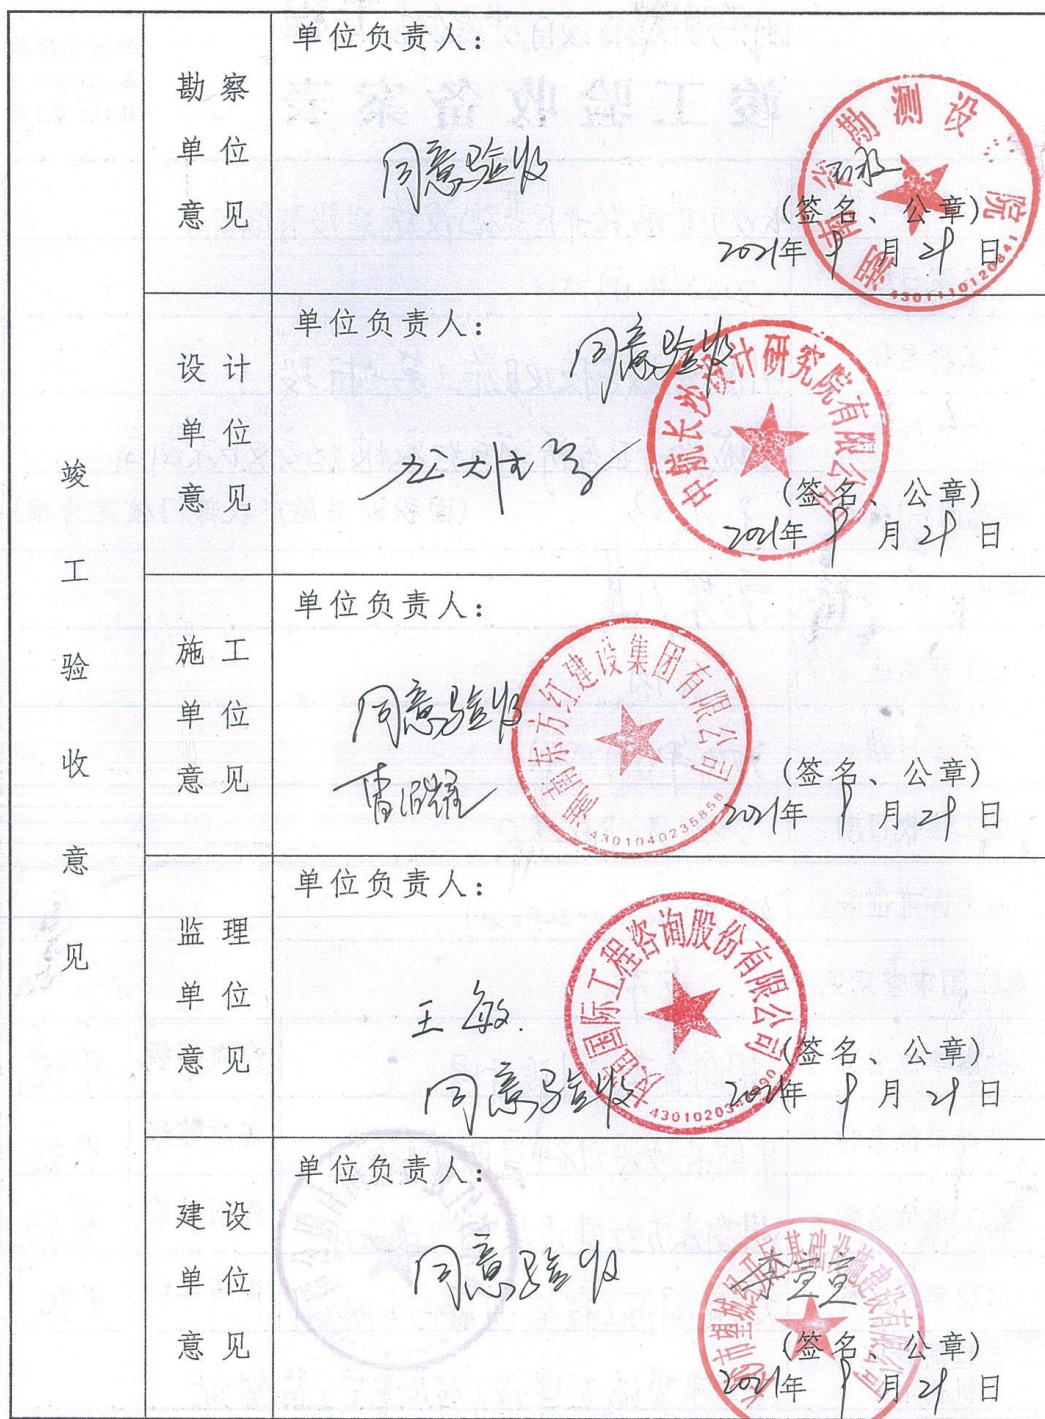 竣工验收意见
勘察单位意见
单位负责人：
同意验收
湖南省勘测设
院
4301110120841
(签名、公章)
2021年9月29日
设计单位意见
单位负责人：
同意验收
中航长沙设计研究院有限公司
(签名、公章)
2021年9月29日
施工单位意见
单位负责人：
同意验收
湖南东方红建设集团有限公司
4301040235858
(签名、公章)
2021年9月29日
监理单位意见
单位负责人：
王敏
同意验收
友谊国际工程咨询股份有限公司
(签名、公章)
2021年9月29日
建设单位意见
单位负责人：
同意验收
长沙市望城经开区基础设施建设有限公司
(签名、公章)
2021年9月29日